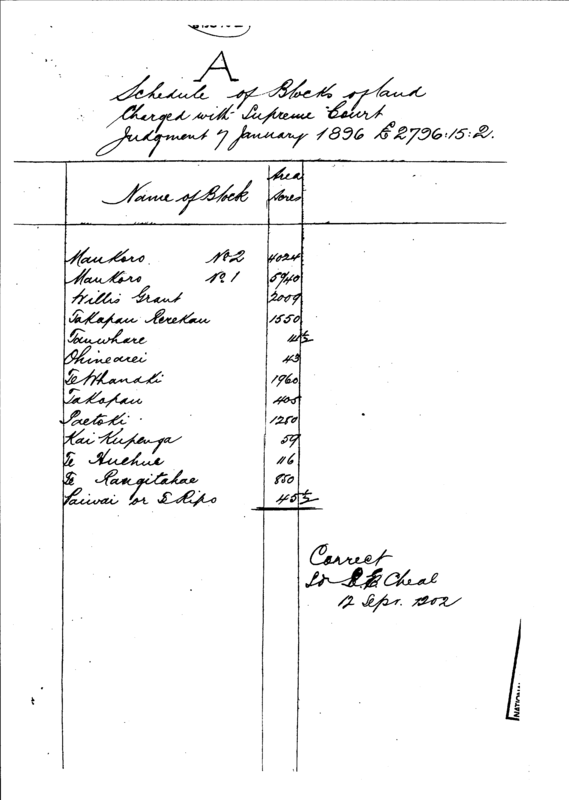 A
Schedule of Blocks of land
Charged with Supreme Court
Judgment 7 January 1896 £2796:15:2.
Name of Block Area Acres
Maukoro No 2 4024
Maukoro No 1 5940
Willis Grant 2009
Takapau Rerekau 1550
Tauwhare
Ohinearei 43
Te Whanaki 1960
Takapau 405
Paetoki 1250
Kai Kupenga 59
Te Huehue 116
Te Rangitahae 850
Paiwai or Te Ripo 45½
Correct
Cheal
12 Sept. 1902